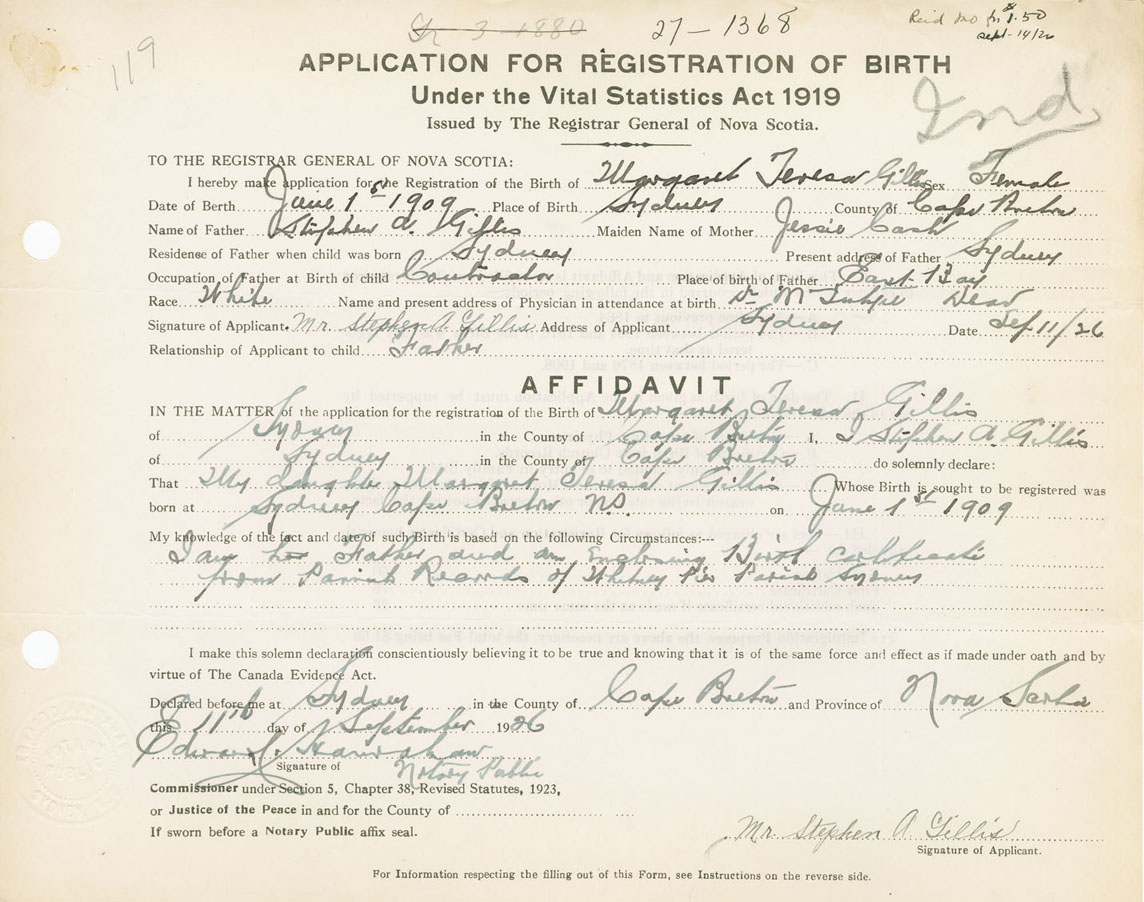 27 - 1368
$1.50
Sept - 14/26
119
APPLICATION FOR REGISTRATION OF BIRTH
Under the Vital Statistics Act 1919
Ind
Issued by The Registrar General of Nova Scotia.
TO THE REGISTRAR GENERAL OF NOVA SCOTIA:
I hereby make application for the Registration of the Birth of Margaret Teresa Gillis Sex Female
Date of Berth June 1st 1909 Place of Birth Sydney County of Cape Breton
Name of Father Stephen A. Gillis Maiden Name of Mother Jessie Cash
Residence of Father when child was born Sydney Present address of Father Sydney
Occupation of Father at Birth of child Contractor Place of birth of Father East Bay
Race White Name and present address of Physician in attendance at birth Dr Dead
Signature of Applicant. Mr. Stephen A. Gillis Address of Applicant Sydney Date Sep 11/26
Relationship of Applicant to child Father
AFFIDAVIT
IN THE MATTER of the application for the registration of the Birth of Margaret Teresa Gillis
of Sydney in the County of Cape Breton I, I Stephen A Gillis
of Sydney in the County of Cape Breton do solemnly declare:
That My daughter Margaret Teresa Gillis Whose Birth is sought to be registered was
born at Sydney Cape Breton N.S. on June 1st 1909
My knowledge of the fact and date of such Birth is based on the following Circumstances:---
I am her Father and am Enclosing Birth certificate
from Parish Records of Whitney Pier Parish Sydney
I make this solemn declaration conscientiously believing it to be true and knowing that it is of the same force and effect as if made under oath and by
virtue of The Canada Evidence Act.
Declared before me at Sydney in the County of Cape Breton and Province of Nova Scotia
this 11th day of September 1926
Signature of Notary Public
Commissioner under Section 5, Chapter 38, Revised Statutes, 1923,
or Justice of the Peace in and for the County of
If sworn before a Notary Public affix seal.
Mr. Stephen A. Gillis
Signature of Applicant.
For Information respecting the filling out of this Form, see Instructions on the reverse side.